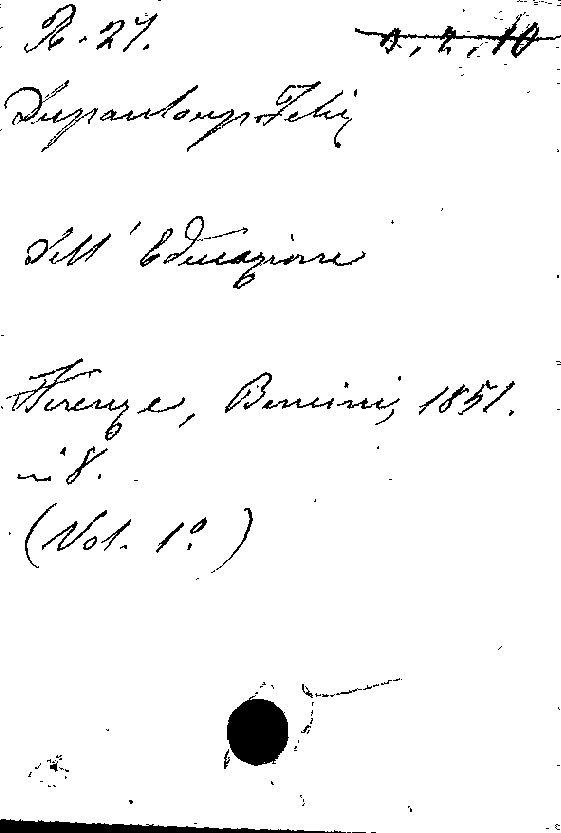 R. 27. 2, 2, 10
Dupanloup Felix
Dell' Educazione
Firenze, Bencini, 1851.
in 8.
(Vol. 1º)